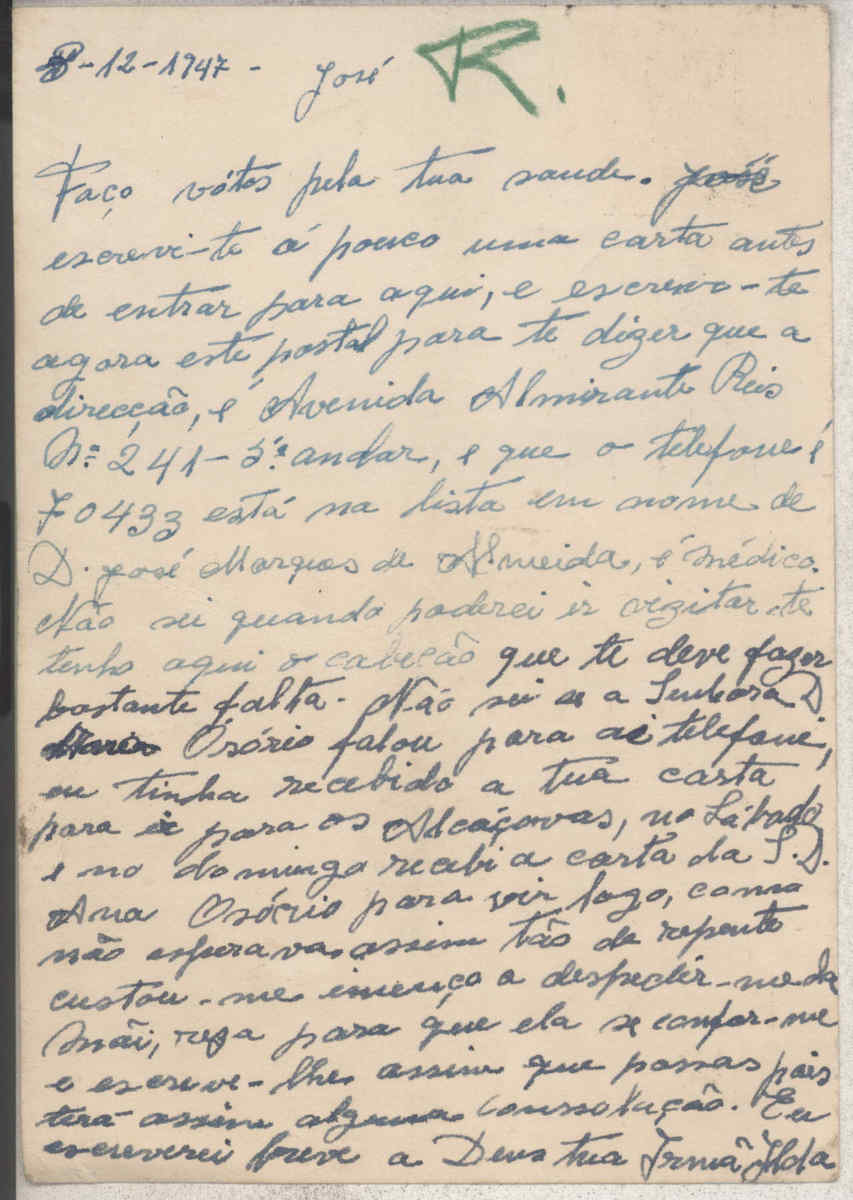 8-12-1947- José R.
Faço vótos pela tua saude. José
escrevi-te á pouco uma carta antes
de entrar para aqui, e escrevo-te
agora este postal para te dizer que a
direcção, é Avenida Almirante Reis
Nº 241-5º andar, e que o telefone é
70433 está na lista em nome de
D. José Marques de Almeida, é médico.
Não sei quando poderei ir vizitar-te
tenho aqui o cabeção que te deve fazer
bastante falta. Não sei se a Senhora D.
Maria Osório falou para ai telefone,
eu tinha recebido a tua carta
para ir para os Alcáçovas, no Sábado
e no domingo recebi a carta da S.D.
Ana Osório para vir logo, como
não esperava assim tão de repente
custou-me imenço a despedir-me da
Mãi, reza para que ela se confor-me
e escreve-lhe assim que possas pois
terá assim alguma conssolução. Eu
escreverei breve a Deus tua Irmã Ilda